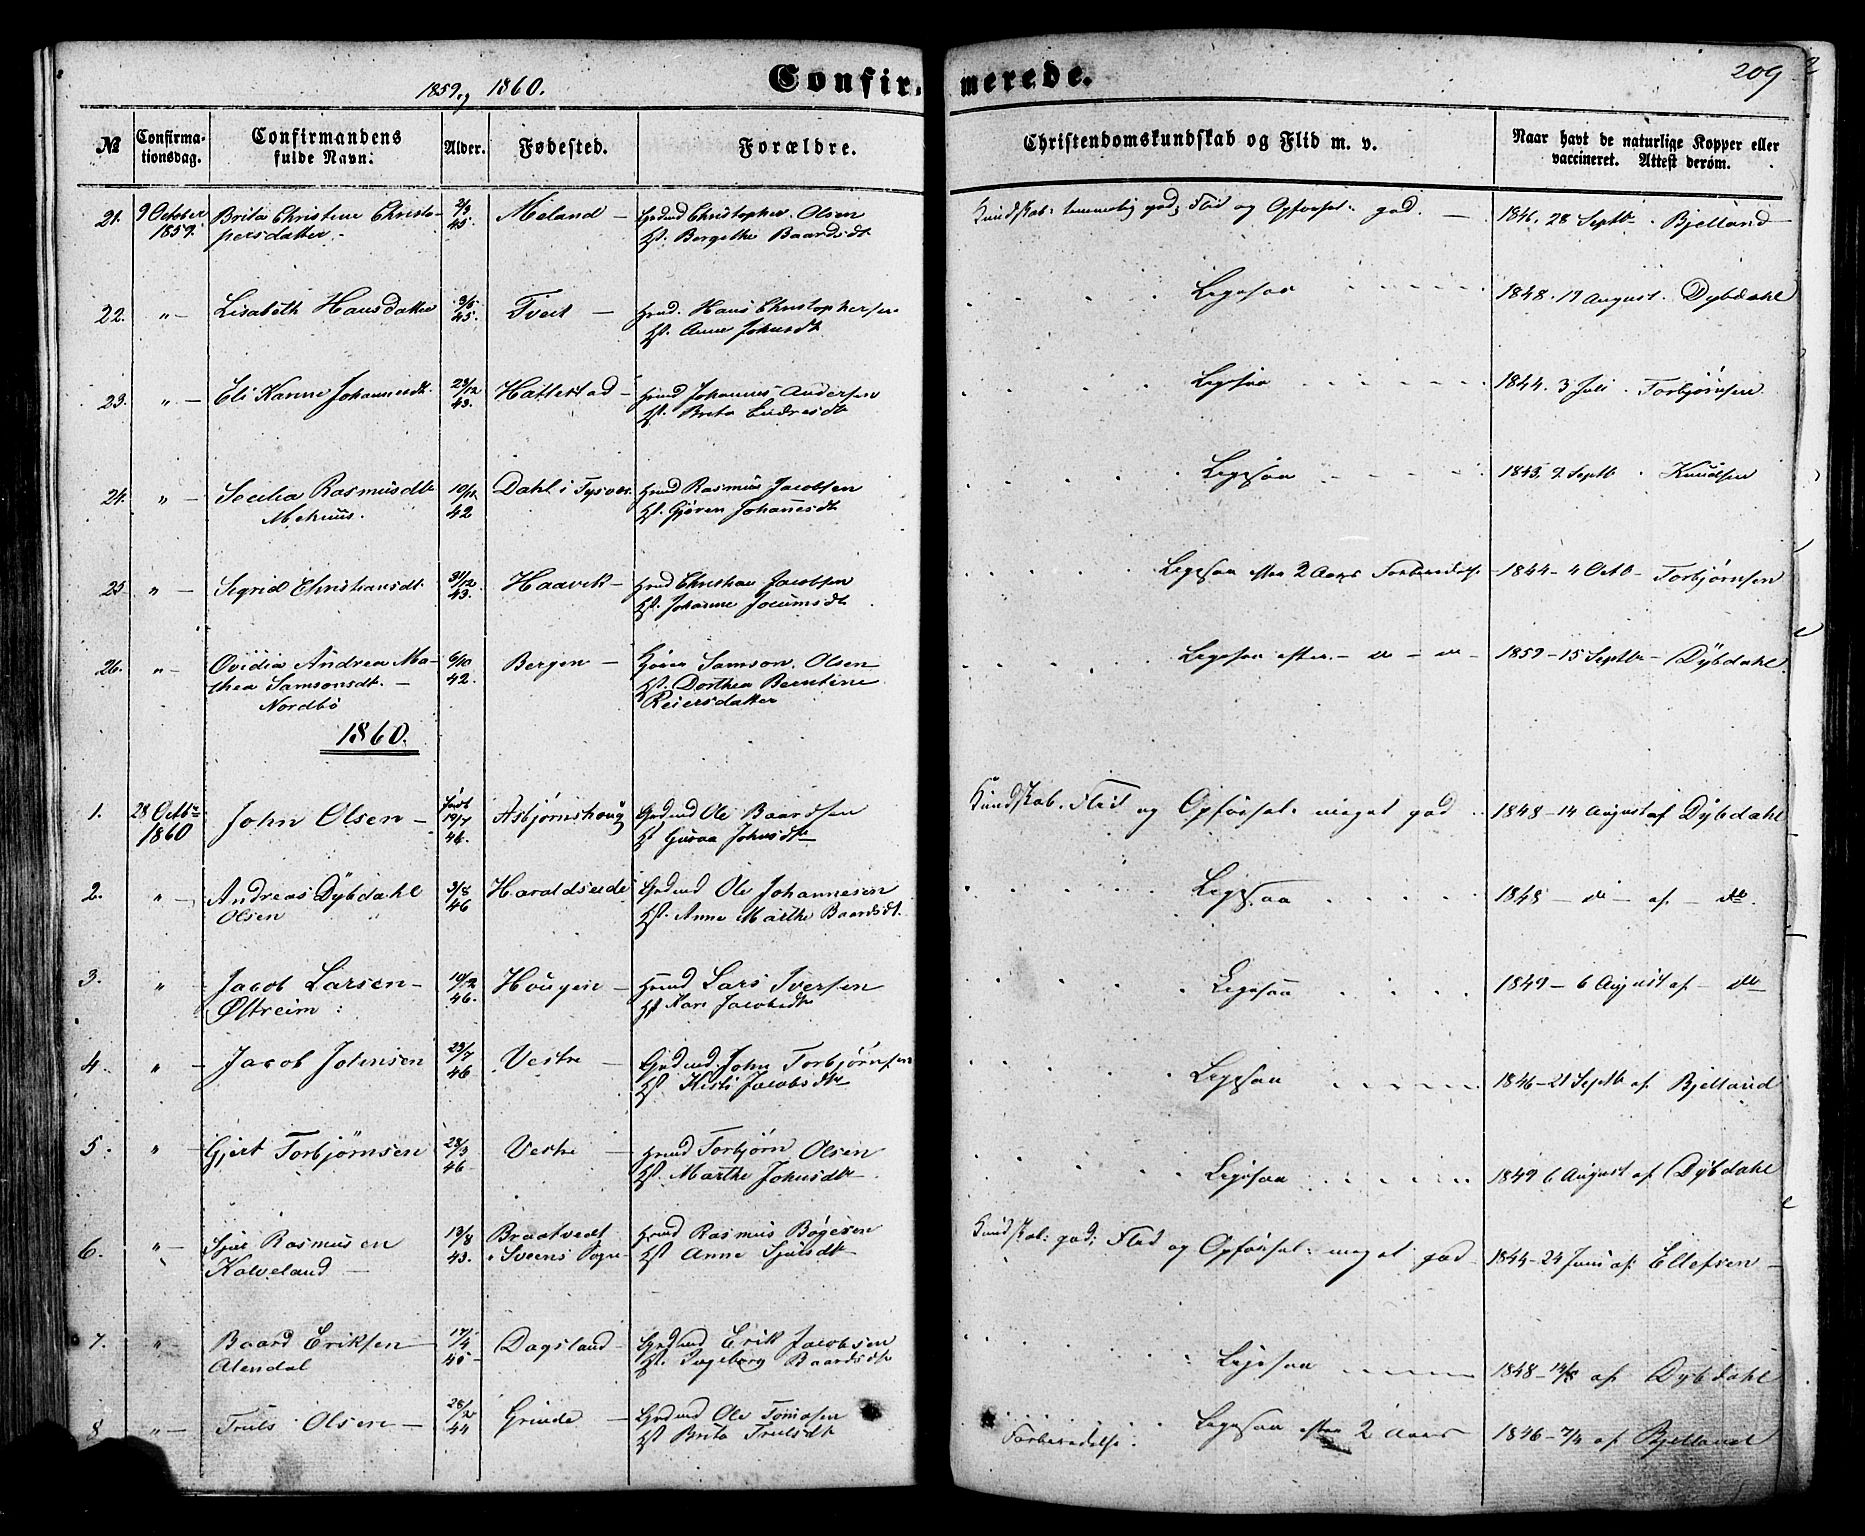 1859 og 1860.
Confirmerede.
209
№
Confirmationsdag.
Confirmandens fulde Navn.
Alder.
Fødested.
Forældre.
Christendomskundskab og Flid m. v.
Naar havt de naturlige Kopper eller vaccineret. Attest derom.
21. 9 October 1859. Brita Christine Christopersdatter - 2/3 45. Meland - Grdmd Christopher Olsen H. Bergethe Baardsdt Kundskab: temmelig god; Flid og Opførsel: god. - 1846. 28 Septbr. Bjelland
22. " - Lisabeth Hansdatter 3/5 45. Tveit - Hmd. Hans Christophersen H. Anne Johnsdt Ligesaa 1848. 17 August. Dybdahl
23. " - Eli Karine Johannesdt. 23/12 43. Hattestad - Hmd Johannes Andersen H. Brita Endresdt Ligesaa 1844. 3 Juli. Torbjørnsen
24. " - Secilia Rasmusdt Mehuus. 10/12 42 Dahl i Tysvær Hmd Rasmus Jacobsen H. Gjøren Johannesdt Ligesaa 1843. 9 Septb. Knudsen
25. " - Sigrid Christiansdt. 31/12 43. Haavik - Hmd Christian Jacobsen H. Johanne Joeumsdt Ligesaa efter 2 Aars Forberedelse - 1844 - 4 Octb - Torbjørnsen
26. " - Ovidia Andrea Mathea Samsonsdt. - Nordbö 6/10 42. Bergen - Samson Olsen H. Dorthea Berntine Reiersdatter Ligesaa efter - do - do - 1859 - 15 Septbr - Dybdahl
1860.
1. 28 Octbr 1860 John Olsen - født 19/7 46. Asbjørnshoug Grdmd Ole Baardsen H. Guroa Johnsdt Kundskab, Flid og Opførsel: meget god 1848 - 14 August af Dybdahl
2. " - Andreas Dybdahl Olsen 3/8 46 Haraldseide Grdmd Ole Johannesen H. Anne Marthe Baardsdt. Ligesaa 1848 - do - af - do.
3. " Jacob Larsen - Øltreim: 10/12 46. Hougene - Hmd Lars Iversen H. Kari Jacobsdt Ligesaa 1849 - 6 August af - do
4. " - Jacob Johnsen 23/7 46 Vestre - Grdmd John Torbjørnsen H. Kisti Jacobsdt Ligesaa 1846 - 21 Septb af Bjelland
5. " - Gjert Torbjørnsen 28/3 46 Vestre - Hmd Torbjørn Olsen H. Marthe Johnsdt Ligesaa 1849 6 August af Dybdahl
6. " - Sjur Rasmusen Kalveland - 13/8 43. Braatvedt i Sveens Sogn Hmd Rasmus Bøgesen H. Anne Sjulsdt Kundskab: god; Flid og Opførsel: meget god 1844 - 24 Juni af Ellefsen -
7. " Baard Eriksen Alendal 17/4 45 - Dagsland - Grdmd Erik Jacobsen H. Ingeborg Baardsdt Ligesaa 1848 - 14/8 af Dybdahl
8 " - Truls Olsen - 28/2 44 Grinde - Grdmd Ole Tomasen H. Brita Trulsdt Ligesaa efter 2 Aars Forberedelse. 1846 - 7/4 af Bjelland